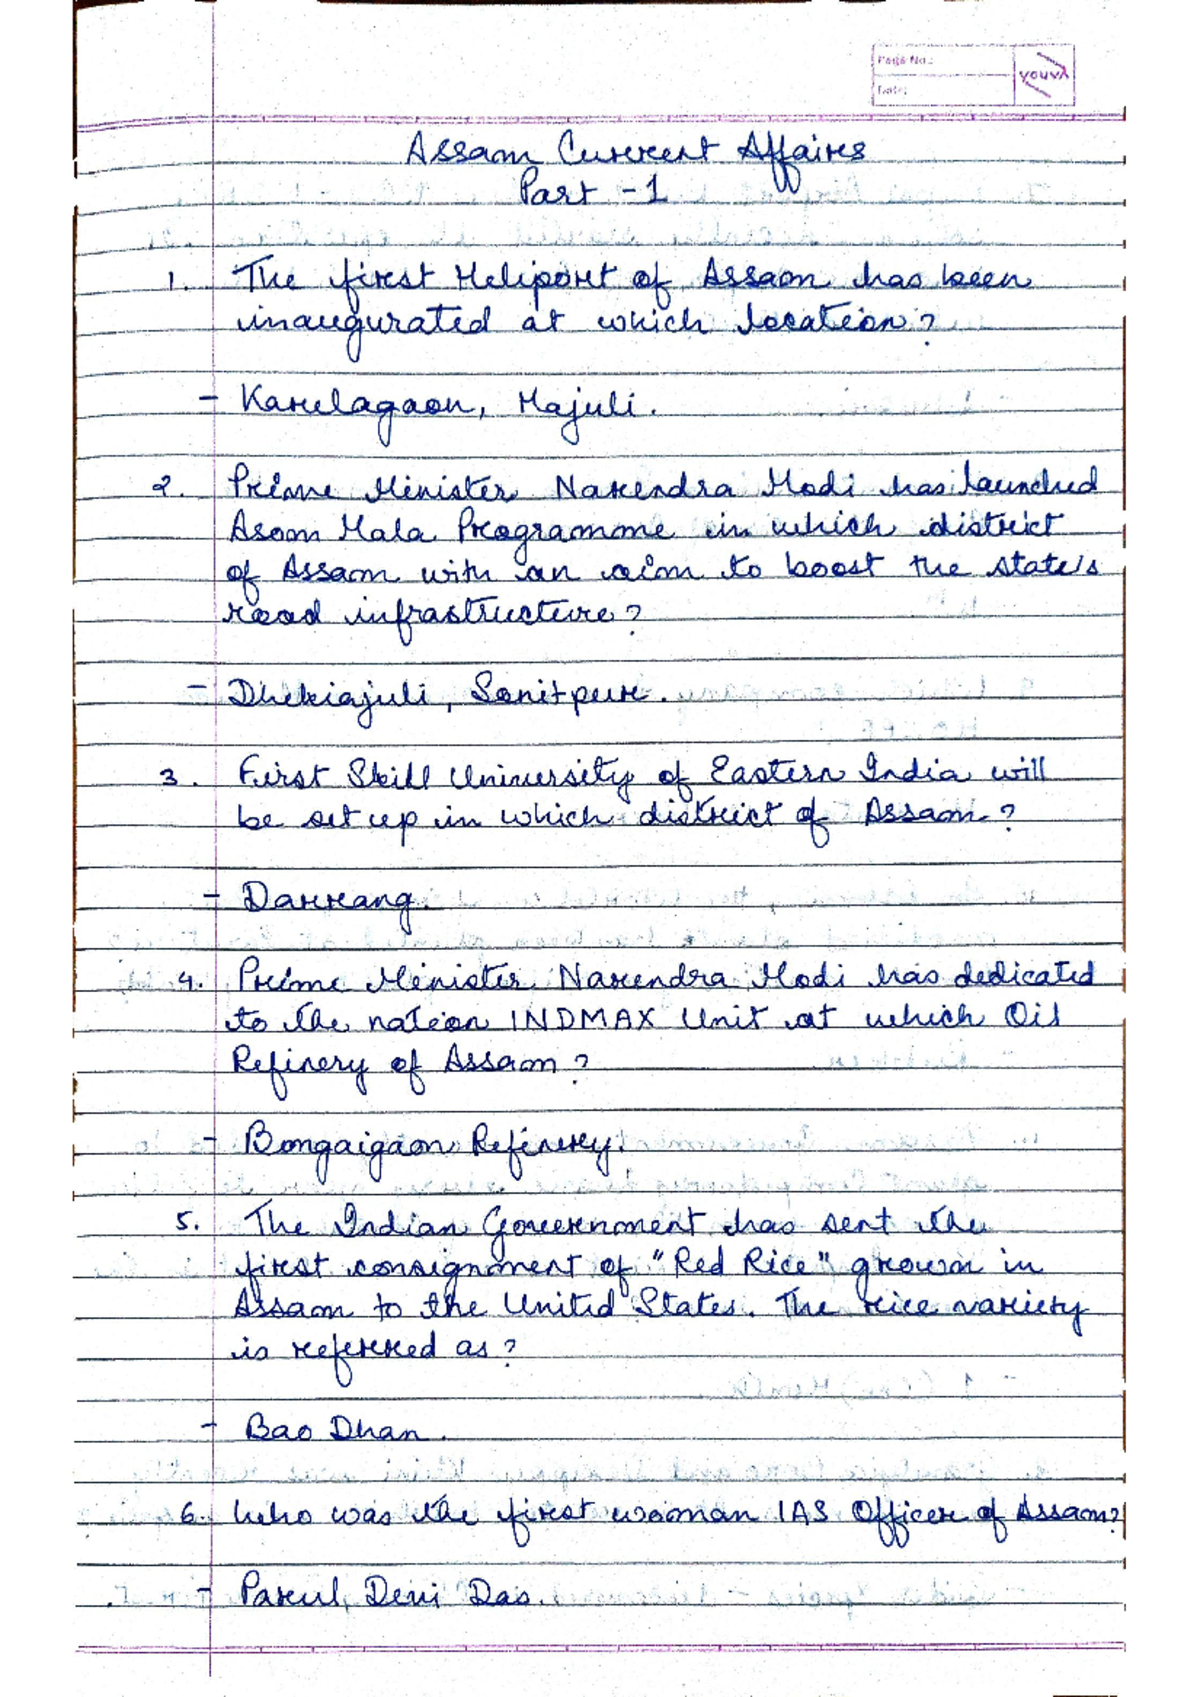 Page No.:
Date:
YOUVA
Assam Current Affairs
Part - 1
1. The first Heliport of Assam has been
inaugurated at which location?
- Karulagaon, Majuli.
2. Prime Minister Narendra Modi has launched
Asom Mala Programme in which district
of Assam with an aim to boost the state's
road infrastructure?
- Dhekiajuli, Sonitpur.
3. First Skill University of Eastern India will
be set up in which district of Assam?
- Darrang.
4. Prime Minister Narendra Modi has dedicated
to the nation INDMAX Unit at which Oil
Refinery of Assam?
- Bongaigaon Refinery.
5. The Indian Government has sent the
first consignment of "Red Rice" grown in
Assam to the United States. The rice variety
is referred as?
- Bao Dhan.
6. Who was the first woman IAS Officer of Assam?
- Parul Devi Das.